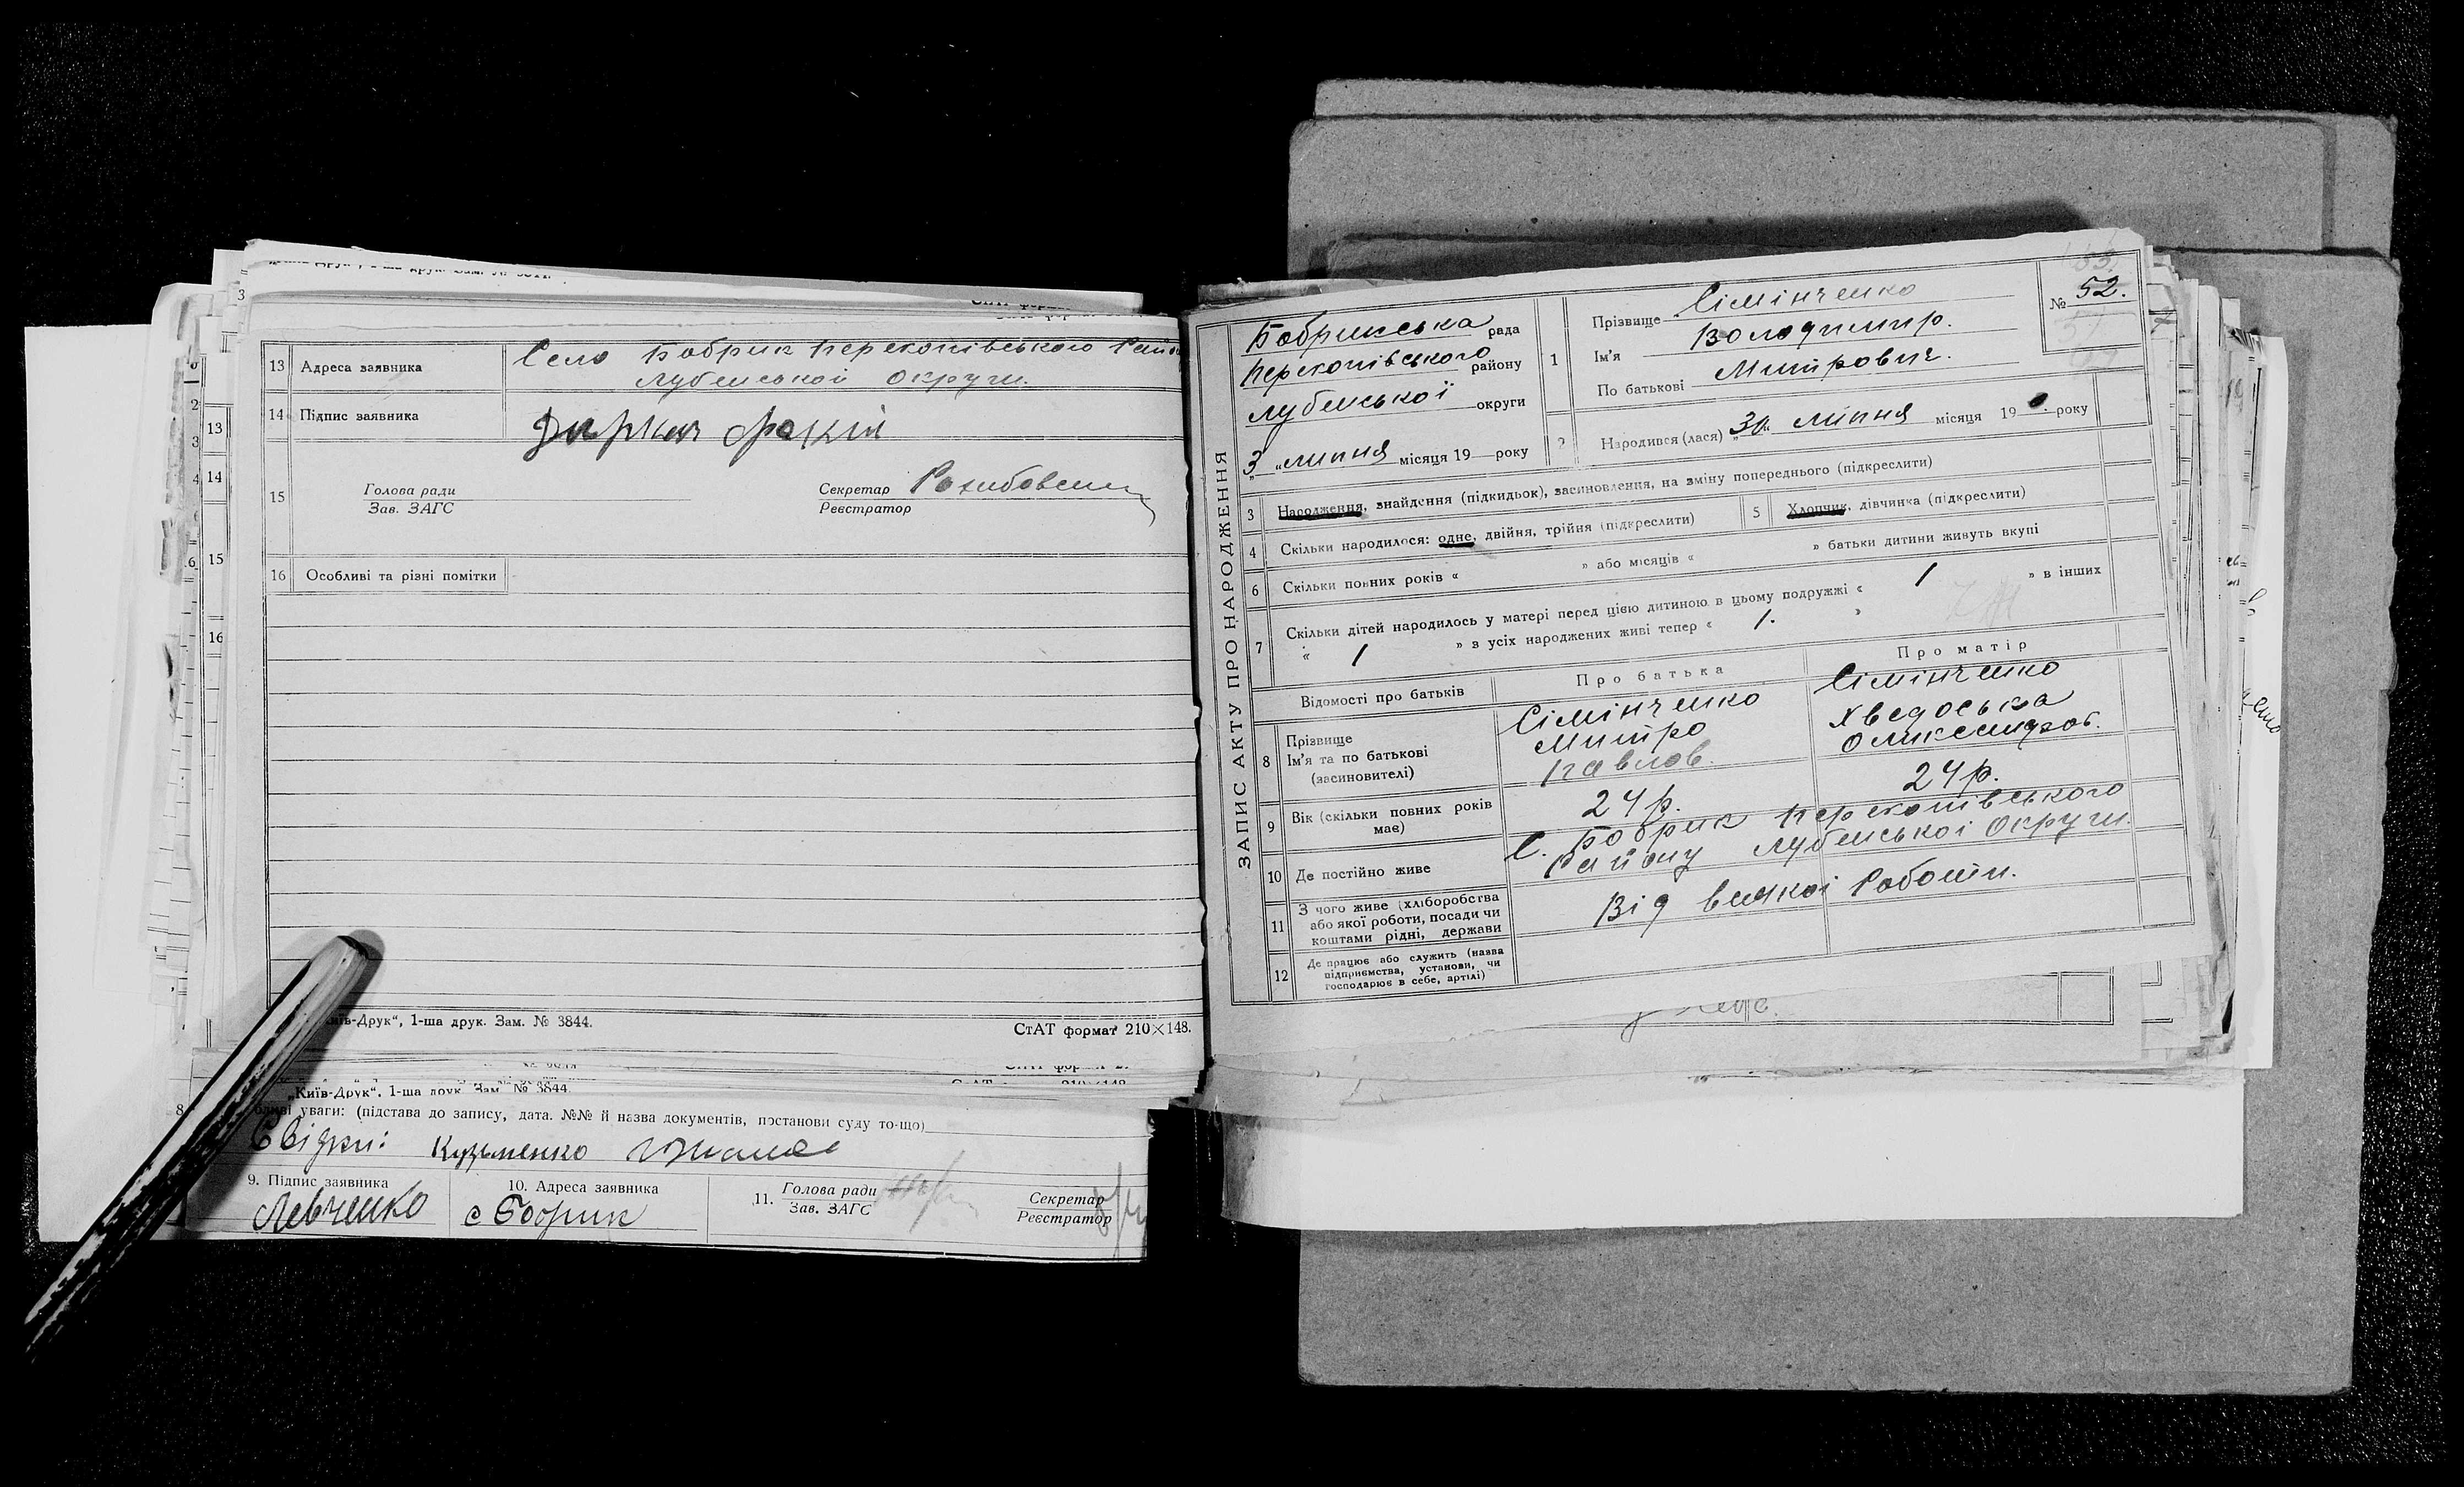 13 Адреса заявника Село Бобрик Перекопівського Район
Лубенської Округи.
14 Підпис заявника Диркач
15 Голова ради Секретар
Зав. ЗАГС Реєстратор
16 Особливі та різні помітки
„Київ-Друк“, 1-ша друк. Зам. № 3844.
СтАТ формат 210×148.
„Київ-Друк“. 1-ша друк. Зам. № 3844.
уваги: (підстава до запису, дата. №№ й назва документів, постанови суду то-що)
Свідки: Кузьменко
9. Підпис заявника 10. Адреса заявника 11. Голова ради Секретар
Левченко с Бобрик Зав. ЗАГС Реєстратор
ЗАПИС АКТУ ПРО НАРОДЖЕННЯ
Бобрикська рада
Перекопівського району
Лубенської округи
3 „липня місяця 19 року
№ 52.
1 Прізвище Сімінченко
Ім'я Володимир.
По батькові Митрович.
2 Народився (лася) „30“ липня місяця 19 року
3 Народження, знайдення (підкидьок), засиновлення, на зміну попереднього (підкреслити)
4 Скільки народилося: одне, двійня, трійня (підкреслити) 5 Хлопчик, дівчинка (підкреслити)
6 Скільки повних років « » або місяців « » батьки дитини живуть вкупі
7 Скільки дітей народилось у матері перед цією дитиною в цьому подружжі « 1 » в інших
« 1 » в усіх народжених живі тепер « 1. »
Відомості про батьків Про батька Про матір
8 Прізвище Сімінченко Сімінченко
Ім'я та по батькові Митро Хведоська
(засиновителі) Павлов. Олександров.
9 Вік (скільки повних років має) 24 р. 24 р.
10 Де постійно живе С. Бобрик Перекопівського
Району Лубенської Округи.
11 З чого живе (хліборобства Від всякої Роботи.
або якої роботи, посади чи
коштами рідні, держави
12 Де працює або служить (назва
підприємства, установи, чи
господарює в себе, артілі)